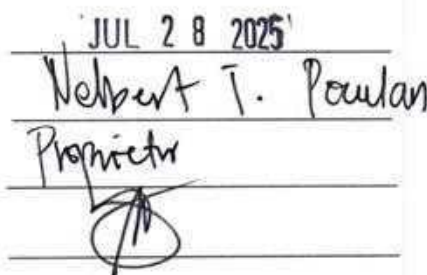 JUL 28 2025
Nelbert T. Paulan
Proprietor